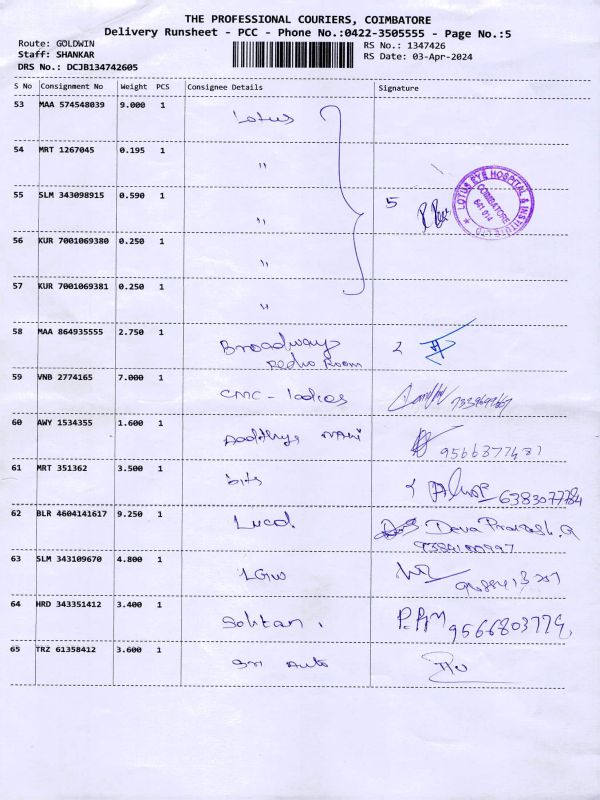 THE PROFESSIONAL COURIERS, COIMBATORE
Delivery Runsheet - PCC - Phone No.:0422-3505555 - Page No.:5
Route: GOLDWIN
Staff: SHANKAR
DRS No.: DCJB134742605
RS No.: 1347426
RS Date: 03-Apr-2024
S No Consignment No Weight PCS Consignee Details Signature
53 MAA 574548039 9.000 1 Lotus
54 MRT 1267045 0.195 1 "
55 SLM 343098915 0.590 1 " 5
LOTUS EYE HOSPITAL & INSTITUTE
COIMBATORE
641 014
56 KUR 7001069380 0.250 1 "
57 KUR 7001069381 0.250 1 "
58 MAA 864935555 2.750 1 Broadways
Room
59 VNB 2774165 7.000 1 CMC -
60 AWY 1534355 1.600 1
61 MRT 351362 3.500 1 bits 6383077784
62 BLR 4604141617 9.250 1 Lucd. Deva Prakash.G
63 SLM 343109670 4.800 1 LGW
64 HRD 343351412 3.400 1 9566803779
65 TRZ 61358412 3.600 1 Sri Auto